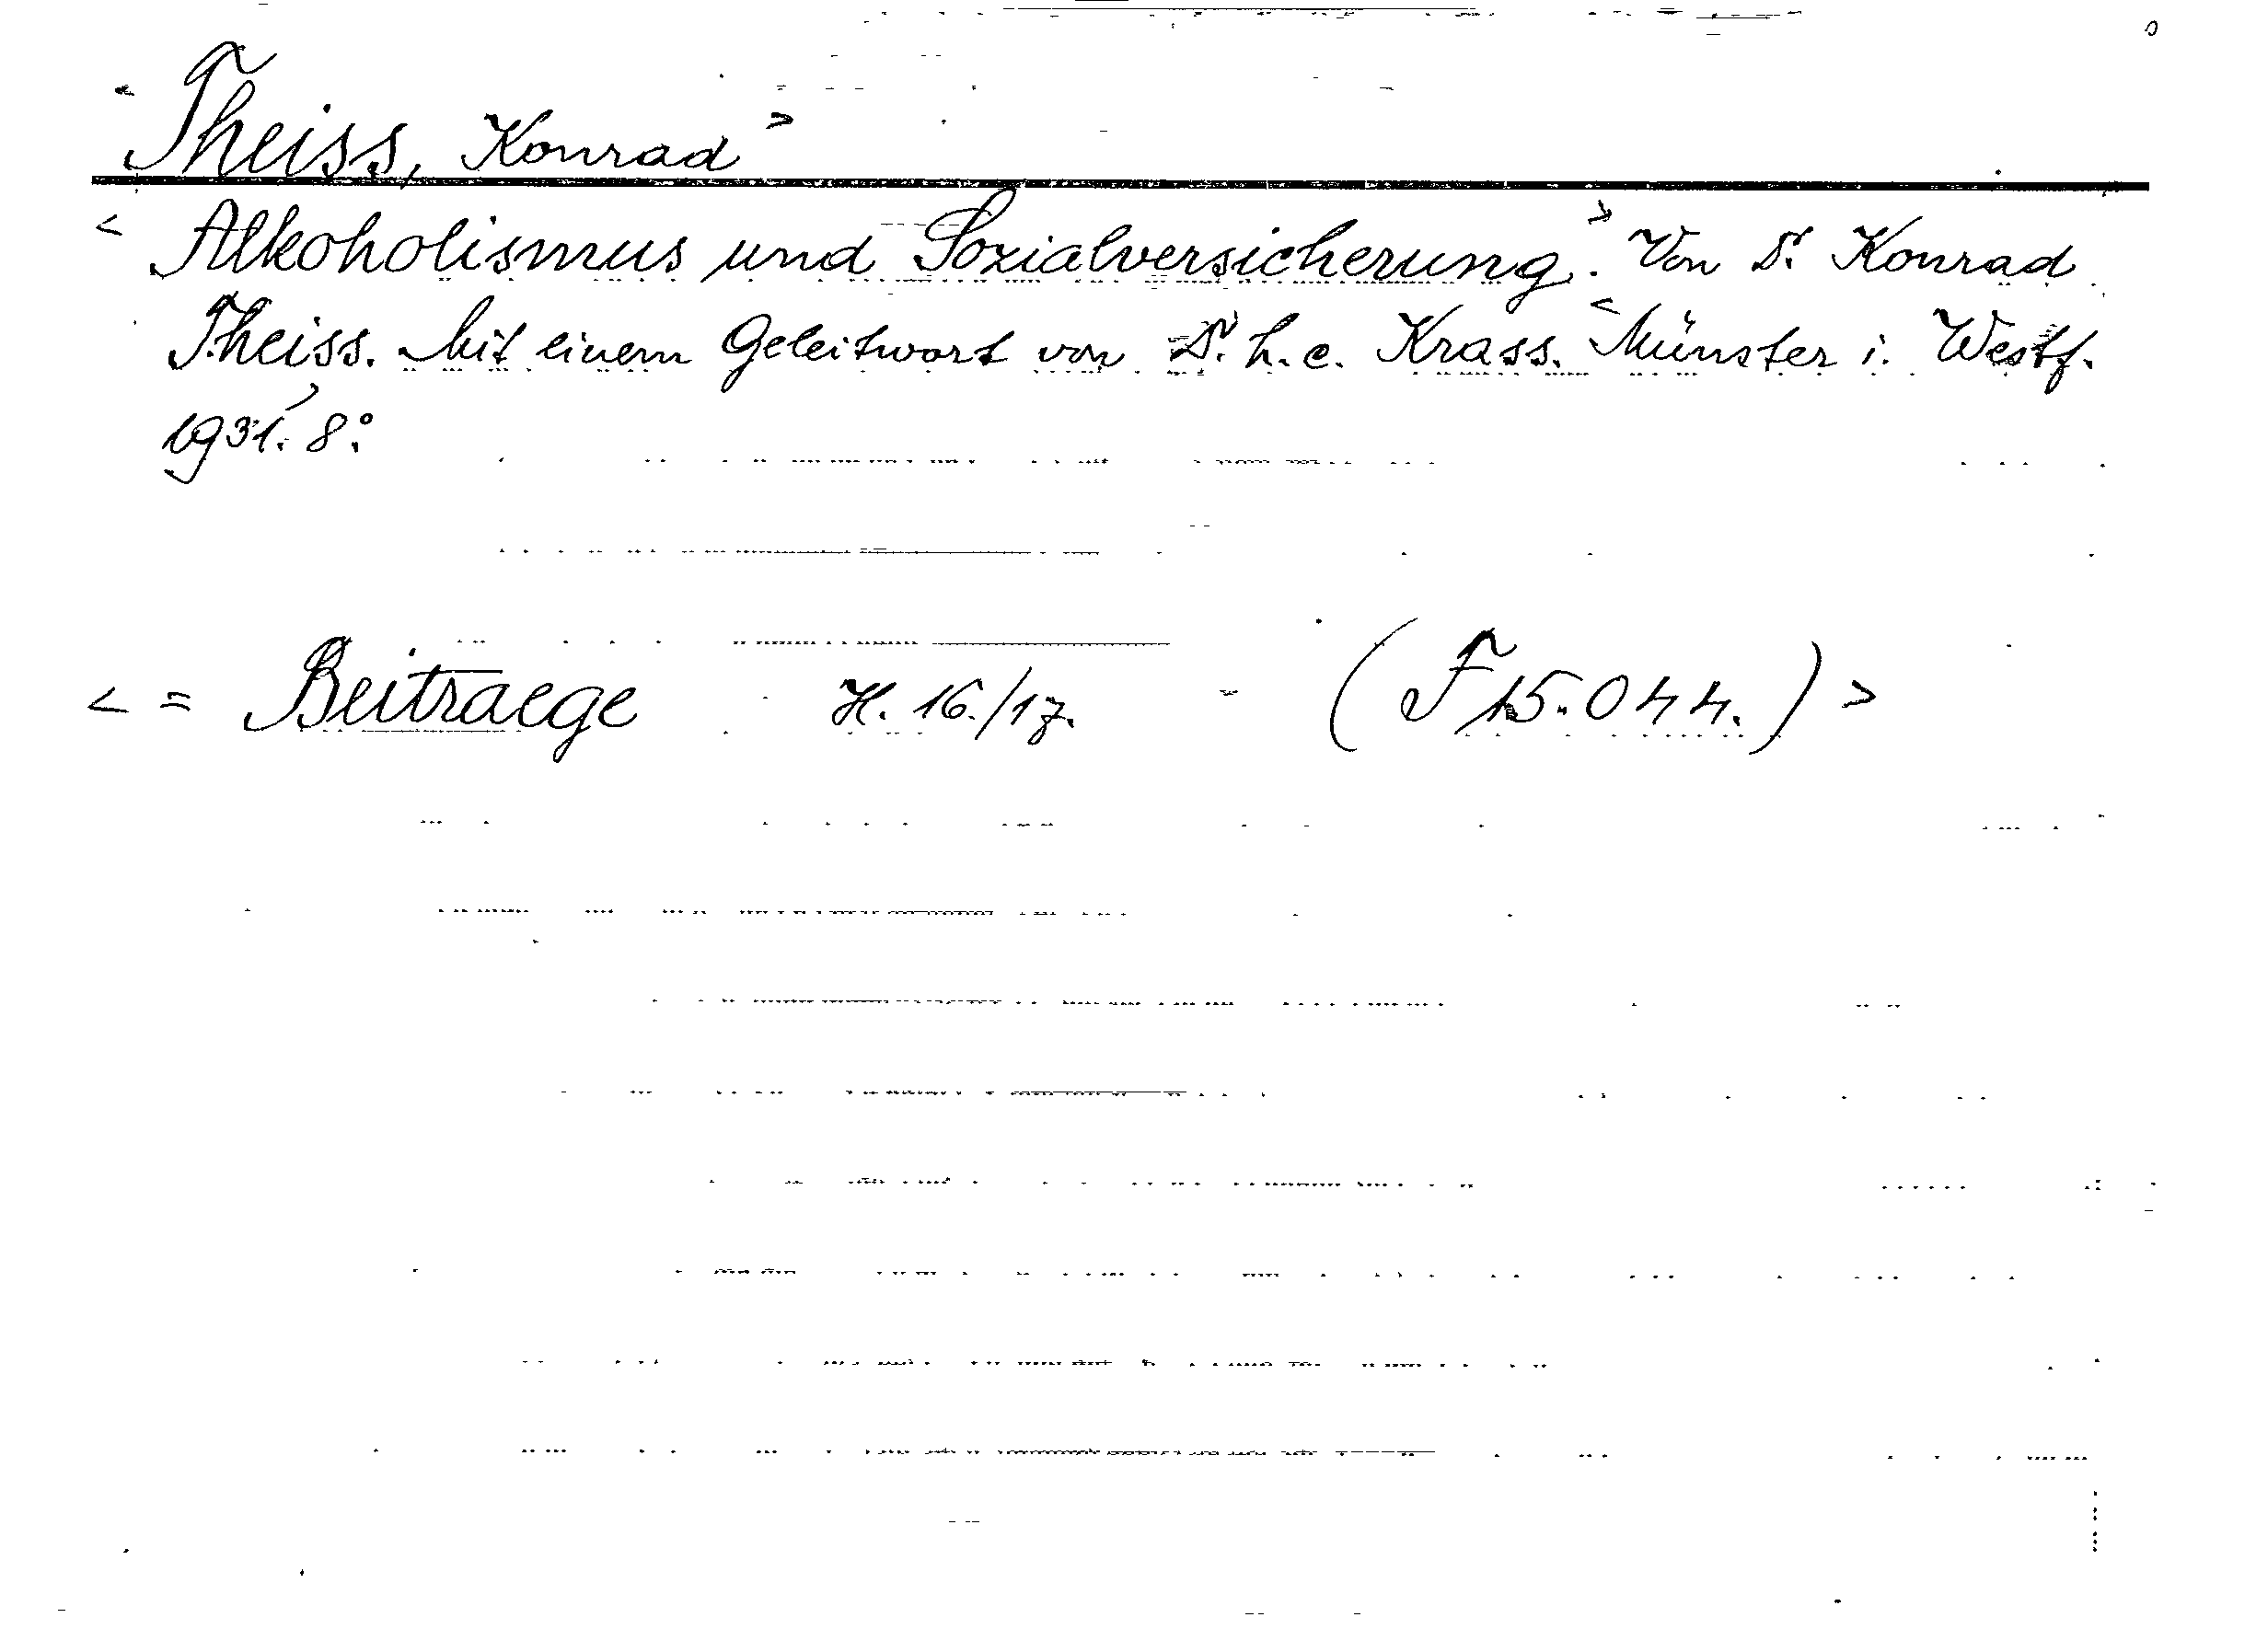 < Theiss, Konrad >
< Alkoholismus und Sozialversicherung. > Von Dr. Konrad
Theiss. Mit einem Geleitwort von Dr. h. c. Krass. < Münster i. Westf.
1931. > 8°.
< = Beitraege H. 16./17. - (F 15.044.) >